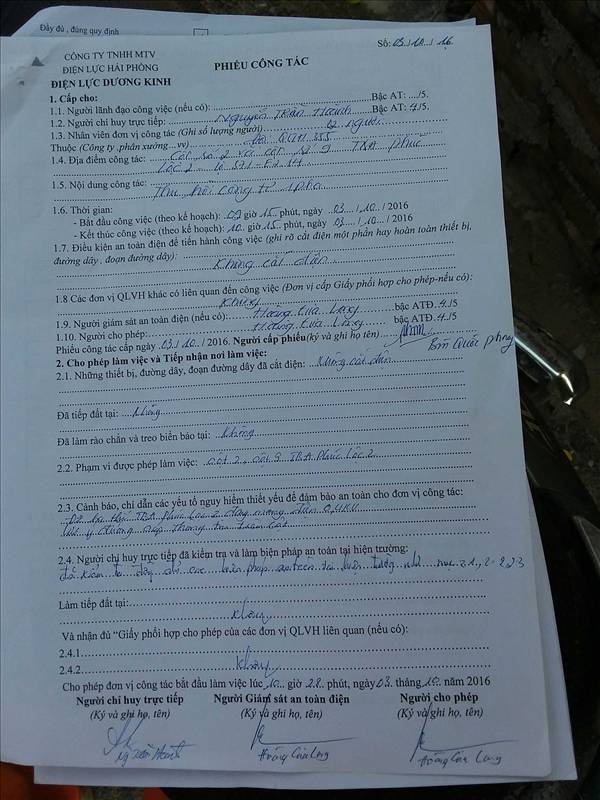 Đầy đủ, đúng quy định
Số: 03./10../ 16
CÔNG TY TNHH MTV
ĐIỆN LỰC HẢI PHÒNG
ĐIỆN LỰC DƯƠNG KINH
PHIẾU CÔNG TÁC
1. Cấp cho:
1.1. Người lãnh đạo công việc (nếu có): Bậc AT: ..../5.
1.2. Người chỉ huy trực tiếp: Nguyễn Trần Thanh Bậc AT: 4./5.
1.3. Nhân viên đơn vị công tác (Ghi số lượng người) người
Thuộc (Công ty ,phân xưởng....vv) Đội QLĐH 355
1.4. Địa điểm công tác: Cột số 2 và cột số 9 TBA Phúc
Lộc 2 - lộ 371 - E2.14
1.5. Nội dung công tác: Thu hồi công tơ 1 pha
1.6. Thời gian:
- Bắt đầu công việc (theo kế hoạch): 09 giờ 15 phút, ngày 03 / 10 / 2016
- Kết thúc công việc (theo kế hoạch): 10 giờ 15 phút, ngày 03 / 10 / 2016
1.7. Điều kiện an toàn điện để tiến hành công việc (ghi rõ cắt điện một phần hay hoàn toàn thiết bị,
đường dây , đoạn đường dây):
Không cắt điện
1.8 Các đơn vị QLVH khác có liên quan đến công việc (Đơn vị cấp Giấy phối hợp cho phép-nếu có):
Không
1.9. Người giám sát an toàn điện (nếu có): Hoàng Cửu Long bậc ATĐ. 4./5
1.10. Người cho phép: Hoàng Cửu Long bậc ATĐ. 4./5
Phiếu công tác cấp ngày 03./10./ 2016. Người cấp phiếu(ký và ghi họ tên)
Quốc phòng
2. Cho phép làm việc và Tiếp nhận nơi làm việc:
2.1. Những thiết bị, đường dây, đoạn đường dây đã cắt điện: Không cắt điện
Đã tiếp đất tại: Không
Đã làm rào chắn và treo biển báo tại: Không
2.2. Phạm vi được phép làm việc: Cột 2, cột 9 TBA Phúc Lộc 2
2.3. Cảnh báo, chỉ dẫn các yếu tố nguy hiểm thiết yếu để đảm bảo an toàn cho đơn vị công tác:
TBA Phúc Lộc 2 đang mang điện 0,4KV
trên cột
2.4. Người chỉ huy trực tiếp đã kiểm tra và làm biện pháp an toàn tại hiện trường:
đã kiểm tra đầy đủ các biện pháp an toàn tại hiện trường như mục 2.1, 2.2, 2.3
Làm tiếp đất tại:
Không
Và nhận đủ “Giấy phối hợp cho phép của các đơn vị QLVH liên quan (nếu có):
2.4.1
2.4.2 Không
Cho phép đơn vị công tác bắt đầu làm việc lúc 10 giờ 28 phút, ngày 03 tháng 10 năm 2016
Người chỉ huy trực tiếp Người Giám sát an toàn điện Người cho phép
(Ký và ghi họ, tên) (Ký và ghi họ, tên) (Ký và ghi họ, tên)
Ng Trần Thanh Hoàng Cửu Long Hoàng Cửu Long